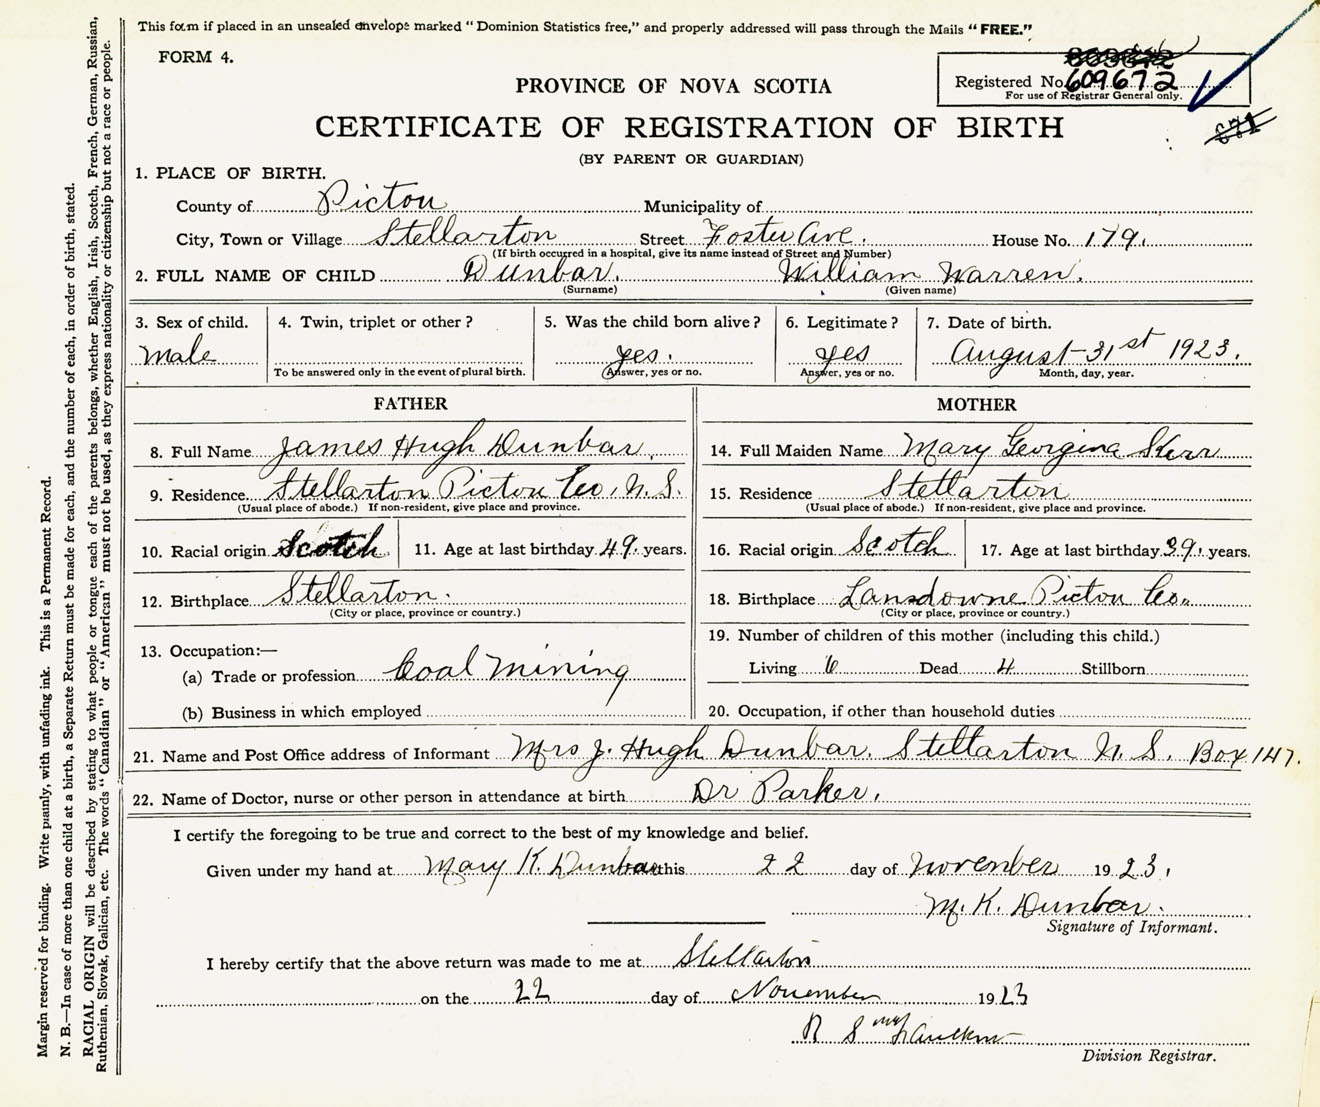 This form if placed in an unsealed envelope marked “Dominion Statistics free,” and properly addressed will pass through the Mails “FREE.”
FORM 4.
Registered No. 609672
For use of Registrar General only.
671
PROVINCE OF NOVA SCOTIA
CERTIFICATE OF REGISTRATION OF BIRTH
(BY PARENT OR GUARDIAN)
1. PLACE OF BIRTH.
County of Pictou Municipality of
City, Town or Village Stellarton Street Foster Ave. House No. 179.
(If birth occurred in a hospital, give its name instead of Street and Number)
2. FULL NAME OF CHILD Dunbar. William Warren.
(Surname) (Given name)
3. Sex of child. 4. Twin, triplet or other? 5. Was the child born alive? 6. Legitimate? 7. Date of birth.
Male yes. yes August 31st 1923.
To be answered only in the event of plural birth. Answer, yes or no. Answer, yes or no. Month, day, year.
FATHER MOTHER
8. Full Name James Hugh Dunbar. 14. Full Maiden Name Mary Georgina Kerr
9. Residence Stellarton Pictou Co, N.S. 15. Residence Stellarton
(Usual place of abode.) If non-resident, give place and province. (Usual place of abode.) If non-resident, give place and province.
10. Racial origin Scotch 11. Age at last birthday 49. years. 16. Racial origin Scotch 17. Age at last birthday 39. years.
12. Birthplace Stellarton. 18. Birthplace Lansdowne Pictou Co.
(City or place, province or country.) (City or place, province or country.)
13. Occupation:— 19. Number of children of this mother (including this child.)
(a) Trade or profession Coal Mining Living 6 Dead 4 Stillborn
(b) Business in which employed 20. Occupation, if other than household duties
21. Name and Post Office address of Informant Mrs J. Hugh Dunbar. Stellarton N.S. Box 147.
22. Name of Doctor, nurse or other person in attendance at birth Dr Parker.
I certify the foregoing to be true and correct to the best of my knowledge and belief.
Given under my hand at Mary K. Dunbar this 22 day of November 1923.
M. K. Dunbar.
Signature of Informant.
I hereby certify that the above return was made to me at Stellarton
on the 22 day of November 1923
R S
Division Registrar.
Margin reserved for binding. Write plainly, with unfading ink. This is a Permanent Record.
N. B.—In case of more than one child at a birth, a Separate Return must be made for each, and the number of each, in order of birth, stated.
RACIAL ORIGIN will be described by stating to what people or tongue each of the parents belongs, whether English, Irish, Scotch, French, German, Russian,
Ruthenian, Slovak, Galician, etc. The words “Canadian” or “American” must not be used, as they express nationality or citizenship but not a race or people.